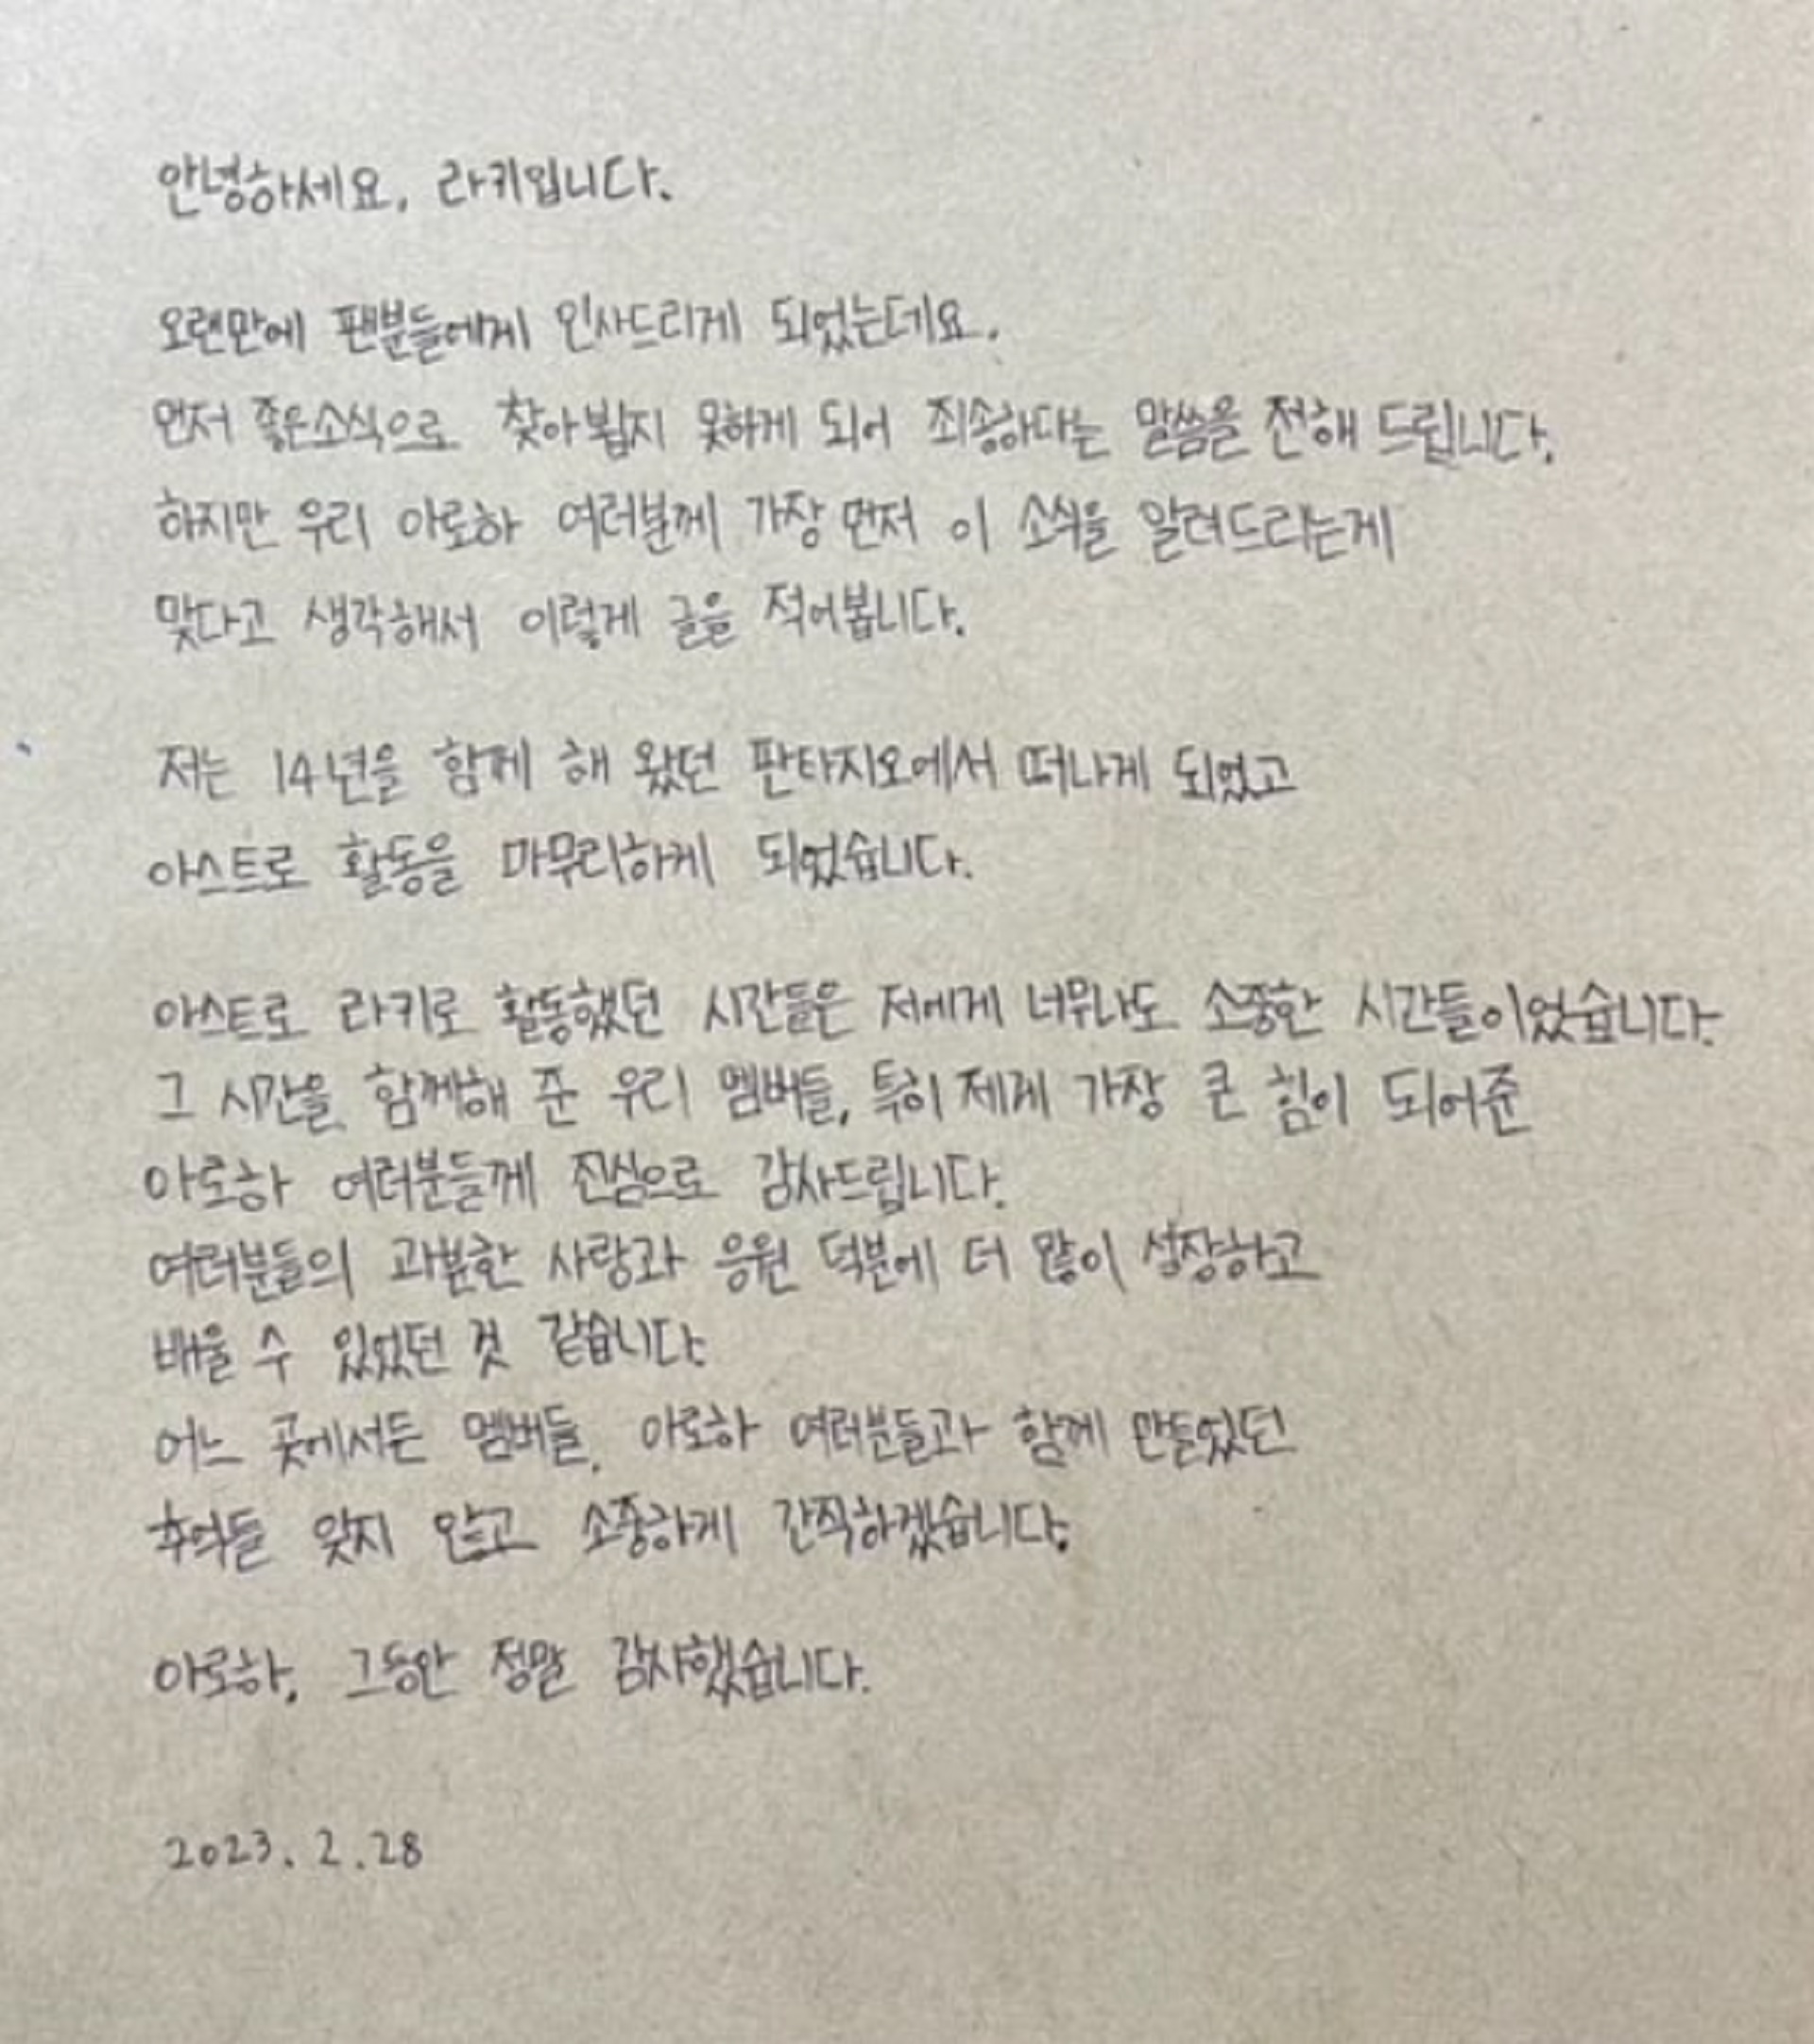 안녕하세요, 라키입니다.
오랜만에 팬분들에게 인사드리게 되었는데요.
먼저 좋은소식으로 찾아뵙지 못하게 되어 죄송하다는 말씀을 전해 드립니다.
하지만 우리 아로하 여러분께 가장 먼저 이 소식을 알려드리는게
맞다고 생각해서 이렇게 글을 적어봅니다.
저는 14년을 함께 해 왔던 판타지오에서 떠나게 되었고
아스트로 활동을 마무리하게 되었습니다.
아스트로 라키로 활동했던 시간들은 저에게 너무나도 소중한 시간들이었습니다.
그 시간을 함께해 준 우리 멤버들, 특히 제게 가장 큰 힘이 되어준
아로하 여러분들께 진심으로 감사드립니다.
여러분들의 과분한 사랑과 응원 덕분에 더 많이 성장하고
배울 수 있었던 것 같습니다.
어느 곳에서든 멤버들, 아로하 여러분들과 함께 만들었던
추억들 잊지 않고 소중하게 간직하겠습니다.
아로하, 그동안 정말 감사했습니다.
2023. 2. 28